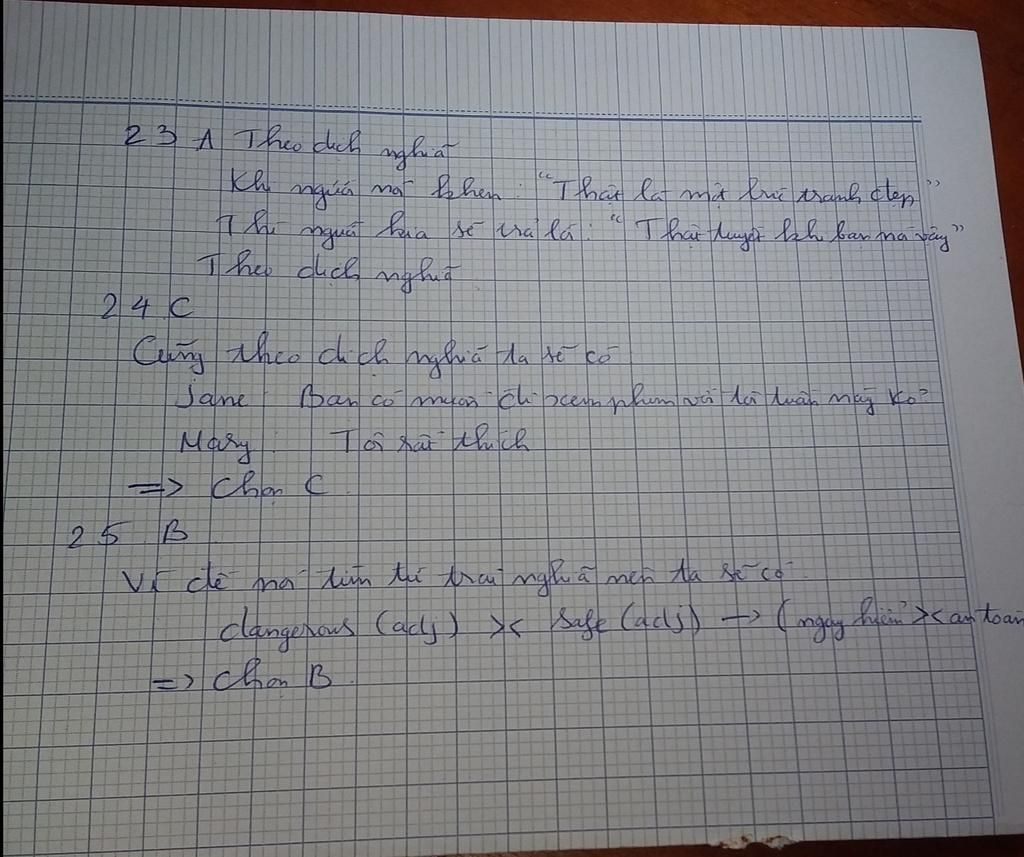 23 A Theo dịch nghĩa
Khi người nói khen: "Thật là một bức tranh đẹp"
Thì người kia sẽ trả lời: "Thật tuyệt khi bạn nói vậy"
Theo dịch nghĩa
24 C
Cũng theo dịch nghĩa ta sẽ có
Jane: Bạn có muốn đi xem phim với tôi tuần này ko?
Mary: Tôi rất thích
=> Chọn C.
25 B
Vì đề nói tìm từ trái nghĩa nên ta sẽ có:
dangerous (adj) >< safe (adj) → (nguy hiểm >< an toàn
=> Chọn B.